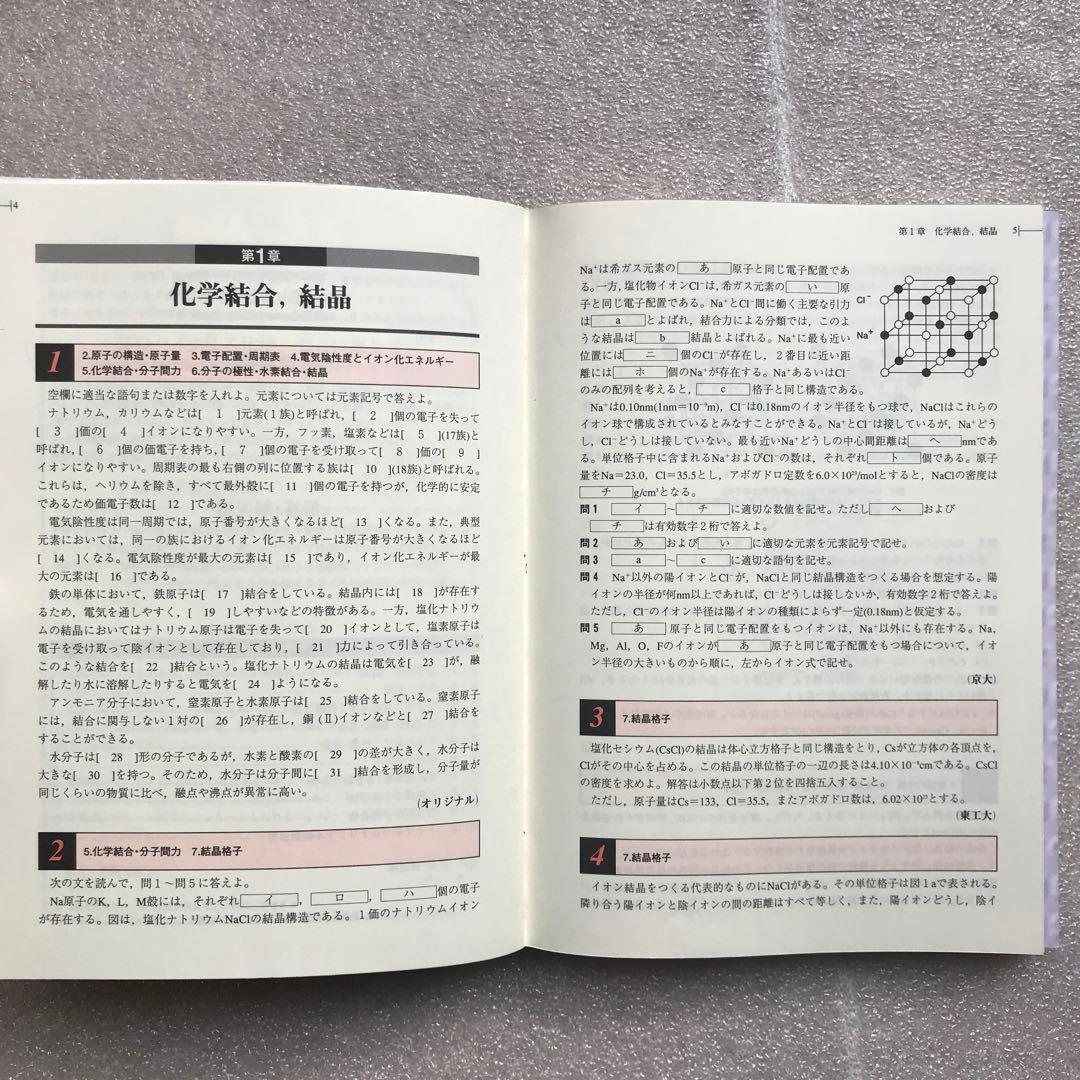 4
第1章
化学結合，結晶
1
2.原子の構造・原子量　3.電子配置・周期表　4.電気陰性度とイオン化エネルギー
5.化学結合・分子間力　6.分子の極性・水素結合・結晶
空欄に適当な語句または数字を入れよ。元素については元素記号で答えよ。
ナトリウム，カリウムなどは[　1　]元素(1族)と呼ばれ，[　2　]個の電子を失って
[　3　]価の[　4　]イオンになりやすい。一方，フッ素，塩素などは[　5　](17族)と
呼ばれ，[　6　]個の価電子を持ち，[　7　]個の電子を受け取って[　8　]価の[　9　]
イオンになりやすい。周期表の最も右側の列に位置する族は[　10　](18族)と呼ばれる。
これらは，ヘリウムを除き，すべて最外殻に[　11　]個の電子を持つが，化学的に安定
であるため価電子数は[　12　]である。
電気陰性度は同一周期では，原子番号が大きくなるほど[　13　]くなる。また，典型
元素においては，同一の族におけるイオン化エネルギーは原子番号が大きくなるほど
[　14　]くなる。電気陰性度が最大の元素は[　15　]であり，イオン化エネルギーが最
大の元素は[　16　]である。
鉄の単体において，鉄原子は[　17　]結合をしている。結晶内には[　18　]が存在す
るため，電気を通しやすく，[　19　]しやすいなどの特徴がある。一方，塩化ナトリウ
ムの結晶においてはナトリウム原子は電子を失って[　20　]イオンとして，塩素原子は
電子を受け取って陰イオンとして存在しており，[　21　]力によって引き合っている。
このような結合を[　22　]結合という。塩化ナトリウムの結晶は電気を[　23　]が，融
解したり水に溶解したりすると電気を[　24　]ようになる。
アンモニア分子において，窒素原子と水素原子は[　25　]結合をしている。窒素原子
には，結合に関与しない1対の[　26　]が存在し，銅(Ⅱ)イオンなどと[　27　]結合を
することができる。
水分子は[　28　]形の分子であるが，水素と酸素の[　29　]の差が大きく，水分子は
大きな[　30　]を持つ。そのため，水分子は分子間に[　31　]結合を形成し，分子量が
同じくらいの物質に比べ，融点や沸点が異常に高い。
(オリジナル)
2
5.化学結合・分子間力　7.結晶格子
次の文を読んで，問1～問5に答えよ。
Na原子のK，L，M殻には，それぞれ イ ， ロ ， ハ 個の電子
が存在する。図は，塩化ナトリウムNaClの結晶構造である。1価のナトリウムイオン
第1章　化学結合，結晶　5
Na⁺は希ガス元素の あ 原子と同じ電子配置であ
る。一方，塩化物イオンCl⁻は，希ガス元素の い 原
子と同じ電子配置である。Na⁺とCl⁻間に働く主要な引力
は a とよばれ，結合力による分類では，このよ
うな結晶は b 結晶とよばれる。Na⁺に最も近い
位置には ニ 個のCl⁻が存在し，2番目に近い距
離には ホ 個のNa⁺が存在する。Na⁺あるいはCl⁻
のみの配列を考えると， c 格子と同じ構造である。
Cl⁻
Na⁺
Na⁺は0.10nm(1nm＝10⁻⁹m)，Cl⁻は0.18nmのイオン半径をもつ球で，NaClはこれらの
イオン球で構成されているとみなすことができる。Na⁺とCl⁻は接しているが，Na⁺どう
し，Cl⁻どうしは接していない。最も近いNa⁺どうしの中心間距離は ヘ nmであ
る。単位格子中に含まれるNa⁺およびCl⁻の数は，それぞれ ト 個である。原子
量をNa＝23.0，Cl＝35.5とし，アボガドロ定数を6.0×10²³/molとすると，NaClの密度は
チ g/cm³となる。
問1　 イ ～ チ に適切な数値を記せ。ただし ヘ および
チ は有効数字2桁で答えよ。
問2　 あ および い に適切な元素を元素記号で記せ。
問3　 a ～ c に適切な語句を記せ。
問4　Na⁺以外の陽イオンとCl⁻が，NaClと同じ結晶構造をつくる場合を想定する。陽
イオンの半径が何nm以上であれば，Cl⁻どうしは接しないか，有効数字2桁で答えよ。
ただし，Cl⁻のイオン半径は陽イオンの種類によらず一定(0.18nm)と仮定する。
問5　 あ 原子と同じ電子配置をもつイオンは，Na⁺以外にも存在する。Na，
Mg，Al，O，Fのイオンが あ 原子と同じ電子配置をもつ場合について，イオ
ン半径の大きいものから順に，左からイオン式で記せ。
(京大)
3
7.結晶格子
塩化セシウム(CsCl)の結晶は体心立方格子と同じ構造をとり，Csが立方体の各頂点を，
Clがその中心を占める。この結晶の単位格子の一辺の長さは4.10×10⁻⁸cmである。CsCl
の密度を求めよ。解答は小数点以下第2位を四捨五入すること。
ただし，原子量はCs＝133，Cl＝35.5，またアボガドロ数は，6.02×10²³とする。
(東工大)
4
7.結晶格子
イオン結晶をつくる代表的なものにNaClがある。その単位格子は図1aで表される。
隣り合う陽イオンと陰イオンの間の距離はすべて等しく，また，陽イオンどうし，陰イ